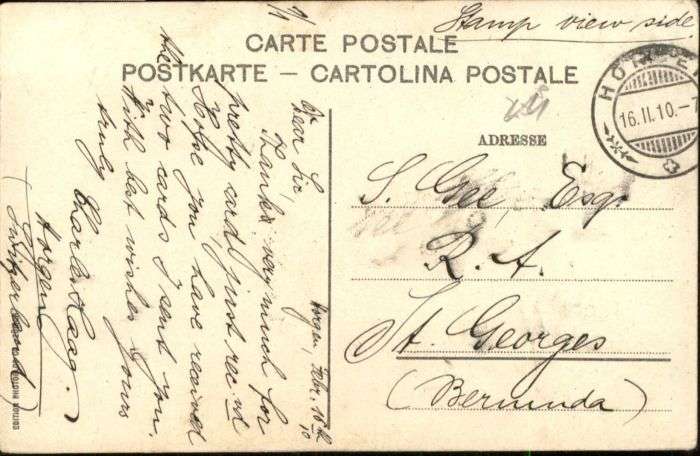 Stamp view side.
CARTE POSTALE
POSTKARTE – CARTOLINA POSTALE
16.II.10.–
ADRESSE
S. Gee, Esq.
R. A.
St. Georges
(Bermuda)
Horgen, Febr. 16th
10
Dear Sir,
Thanks very much for
pretty card, just rec.vd
Hope you have received
the two cards I sent you.
With best wishes yours
truly
Charles Haag.
Horgen
(Switzerland)